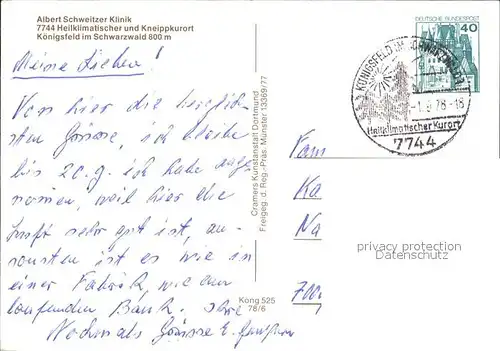 Albert Schweitzer Klinik
7744 Heilklimatischer und Kneippkurort
Königsfeld im Schwarzwald 800 m
DEUTSCHE BUNDESPOST
40
KÖNIGSFELD IM SCHWARZWALD
-1.9.78-18
Heilklimatischer Kurort
7744
Meine Lieben!
Von hier die herzlich-
sten Grüsse, ich bleibe
bis 20.9. ich habe
nommen, weil hier die
Luft sehr gut ist, an-
sonsten ist es wie in
einer Fabrik, wie am
laufenden Band.
Nochmals Grüsse
Cramers Kunstanstalt Dortmund
Freigeg. d. Reg.-Präs. Münster 13369/77
Kong 525
78/6
Fam
Ka
Na
700
privacy protection
Datenschutz